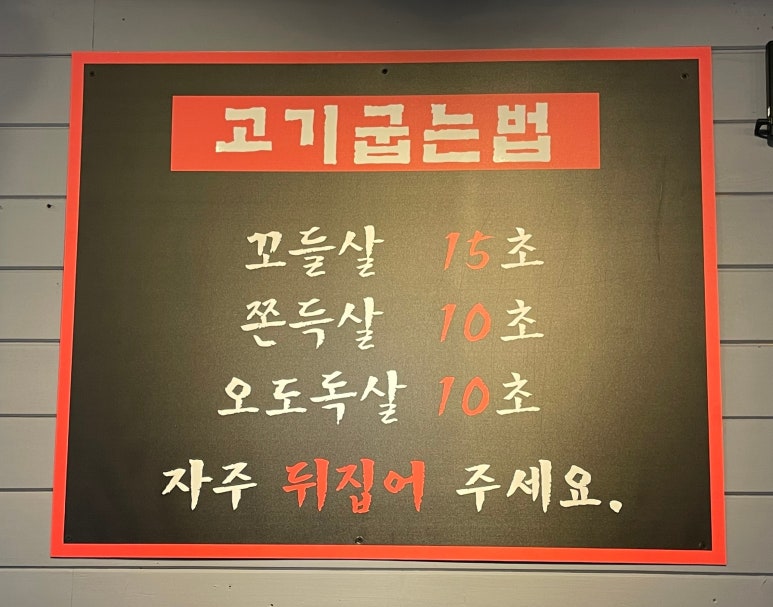 고기굽는법
꼬들살 15초
쫀득살 10초
오도독살 10초
자주 뒤집어 주세요.